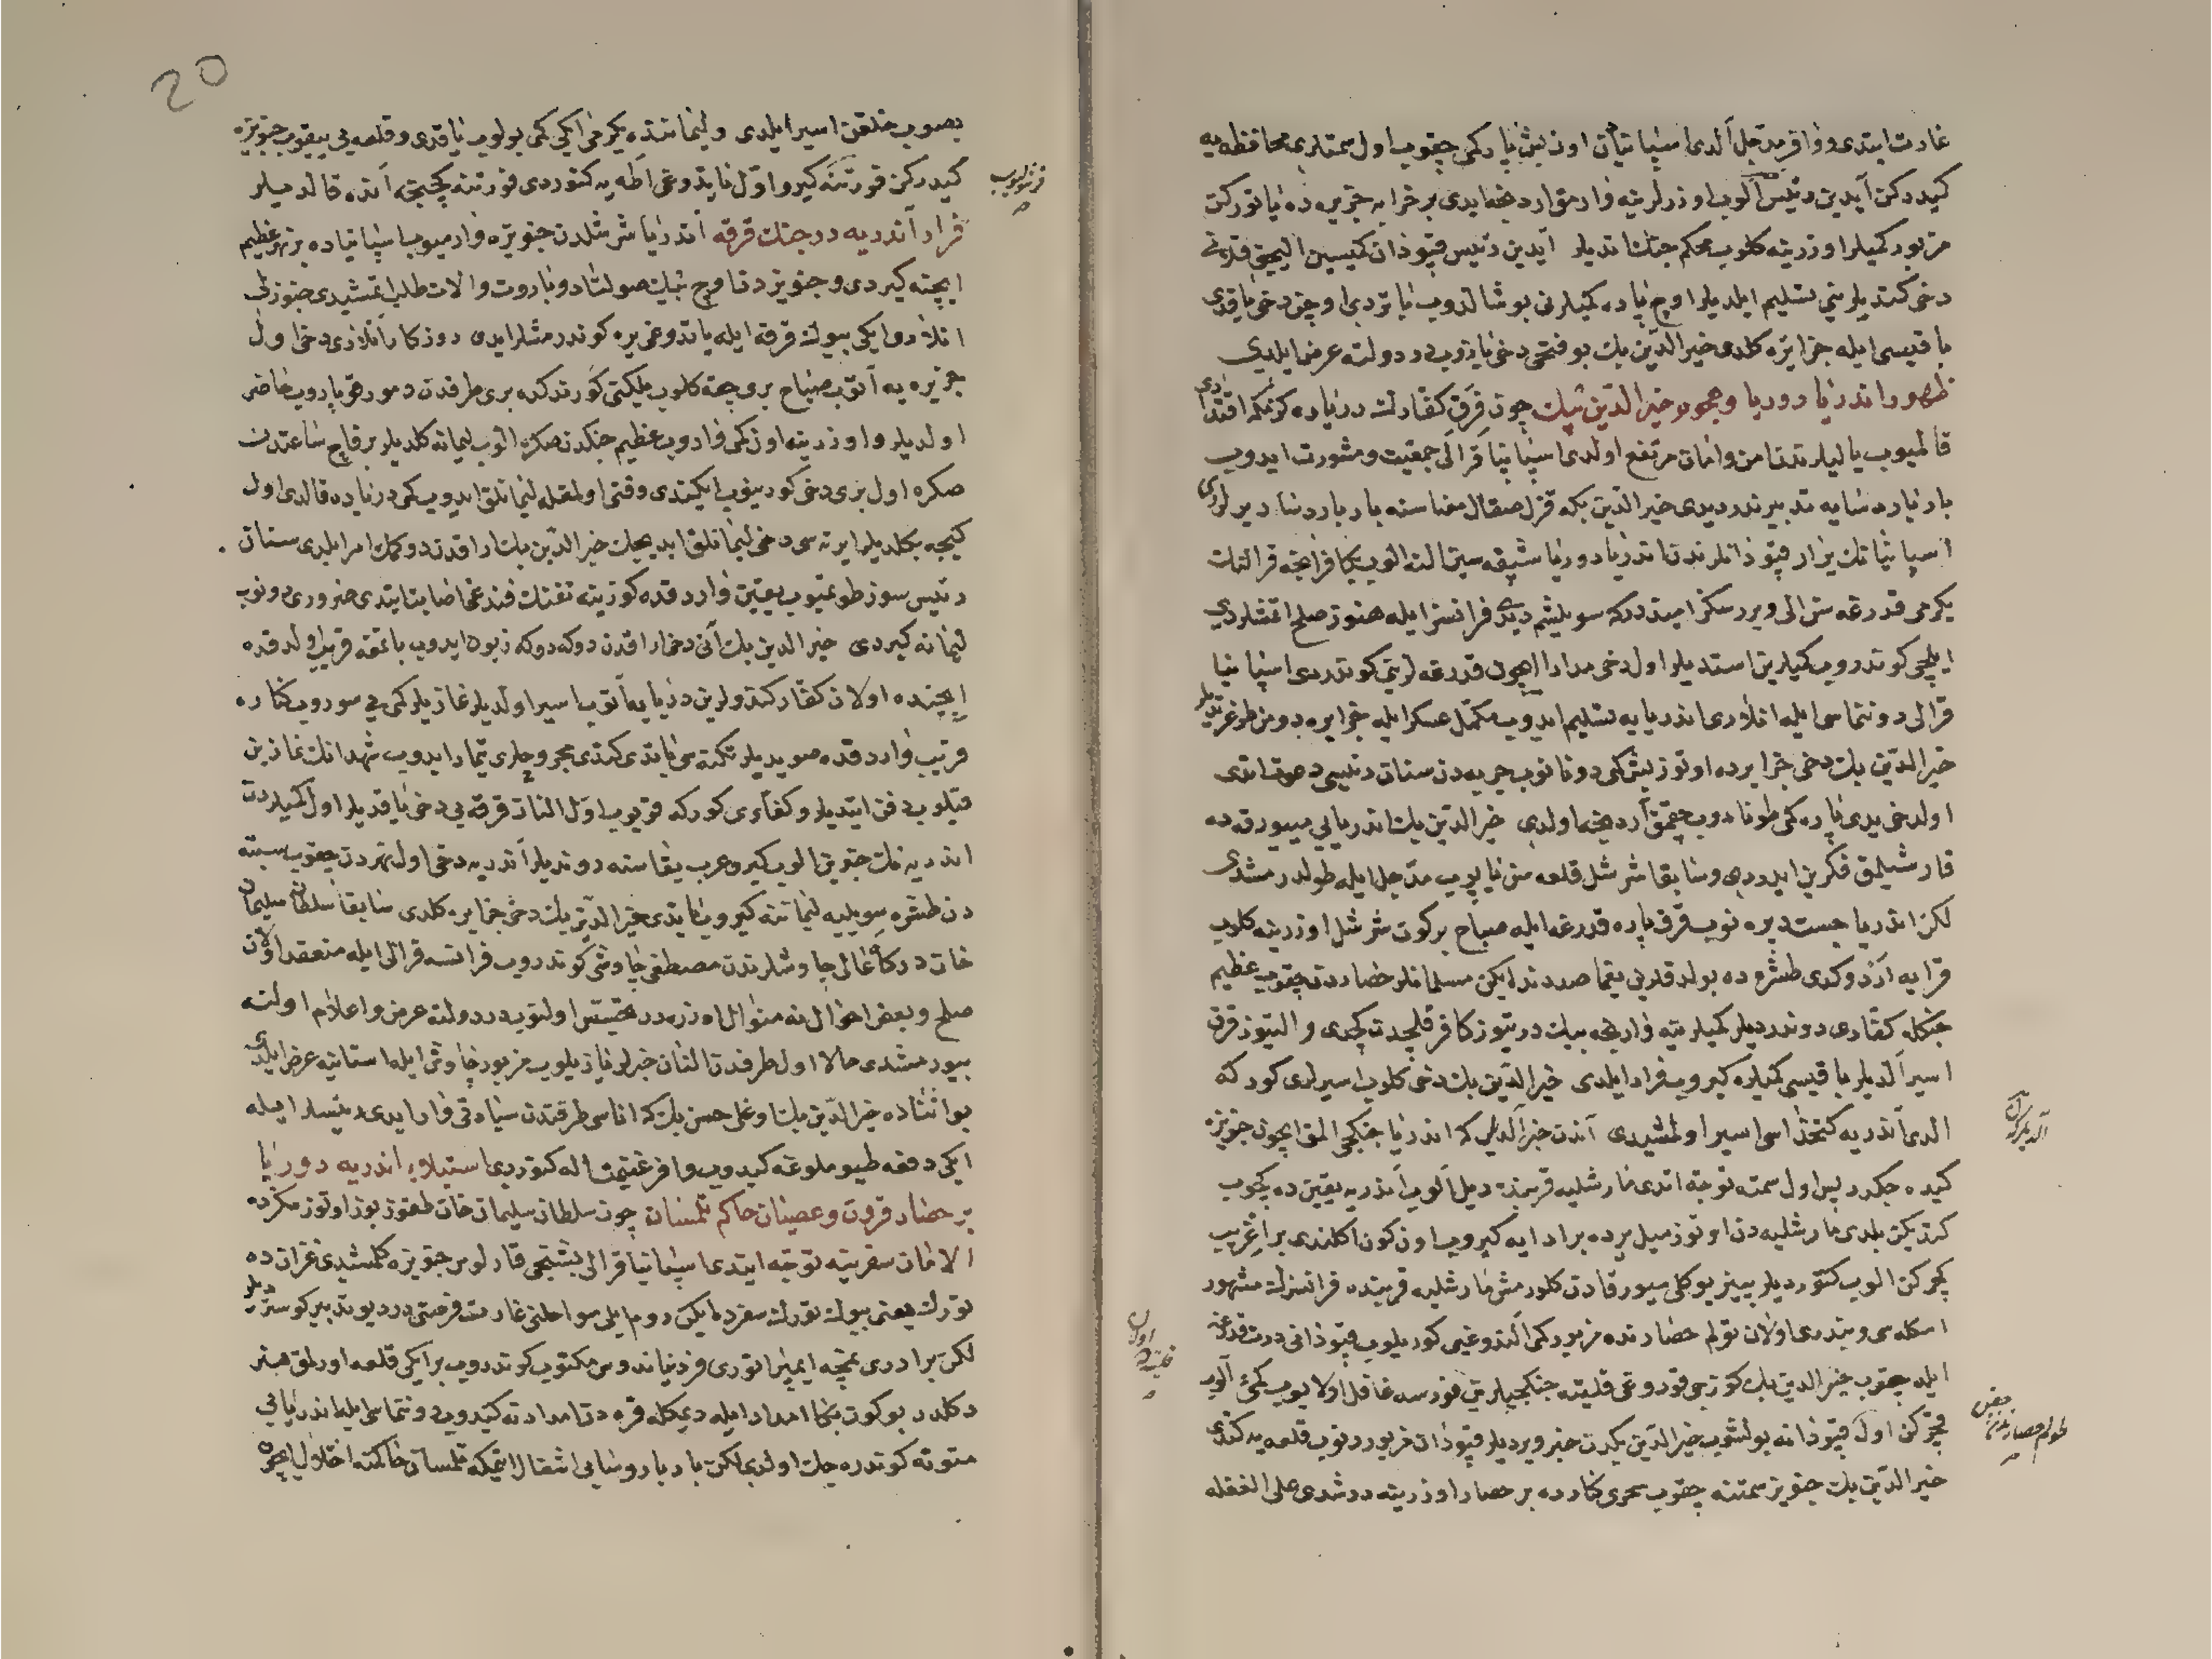 غارت ایتدی و وافر مدجل آلدی اسپانیان اون بش پاره کمی چقوب اول سمتلری محافظه یه
کیدرکن آیدین رئیس آلوب اوزرلرینه وارمق اردنجه ایدی بر خرابه جزیره ده یاتورکن
مزبور کمیلر اوزرینه کلوب محکم جنك اتدیلر آیدین رئیس قپوذان کمیسین الیجق
دخی کندیلرینی تسلیم ایلدیلر اوچ پاره کمیلرنی بوشالدوب باتردی اوچن دخی یاقدی
باقیسی ایله جزایره کلدی خیر الدین بك بو فتحی دخی یازوب در دولته عرض ایلدی
ظهور اندریا دوریا و هجوم خیر الدین بك چون فرق کفارك دریاده کزمکه اقتداری
قالمیوب یالیلرندن امن وامان مرتفع اولدی اسپانیا قرالی جمعیت و مشورت ایدوب
بارباروشایه تدبیر ندر دیدی خیر الدین بکه قزل صقال معناسنه بارباروشا دیرلردی
اسپانیانك یرار قپوذانلرندن اندریا دوریا شبقه سین النه الوب بکا فرانچه قرالنك
یکرمی قدرغه سن الی ویررسکز امیددر که سویلشم دیدی فرانسز ایله هنوز صلح اتمشلردی
ایلچی کوندروب کمیلرین استدیلر اول دخی مدارا ایچون قدرغه لرینی کوندردی اسپانیا
قرالی دونتماسی ایله انلاری اندریایه تسلیم ایدوب مکمل عسکر ایله جزایره دومن طوغرتدیلر
خیر الدین بك دخی جزایرده اوتوز بش کمی دوناتوب جربه دن سنان رئیسی دعوت اتدی
اولدخی یدی پاره کمی طونادوب چقمق اردنجه اولدی خیر الدین بك اندریایی میورقه ده
قارشیلمق فکرین ایدردی و سابقا شرشل قلعه سن یاپوب مدجل ایله طولدرمشدی
لکن اندریا جست دیره نوب قرق پاره قدرغه ایله صباح بر کون شرشل اوزرینه کلوب
قرایه ادم دوکدی طشره ده بولدقلرنی یغما صددنده ایکن مسلمانلر حصاردن چقوب عظیم
جنکله کفاری دوندردیلر کمیلرینه وارنجه بیك دریوز کافر قلجدن کچدی والتیوز قرق
اسیر آلدیلر باقیسی کمیلره کیروب فرار ایلدی خیر الدین بك دخی کلوب اسیرلری کوره که
الدی اندریه کتخداسی اسیر اولمشدی آندن خبر آلدیلر که اندریا جنکجی المق ایچون جنویزه
کیده جکدر پس اول سمته توجه اتدی مارشلیه قربنده دیل آلوب اندریه یقین ده کچوب
کتدیکن بلدی مارشلیه دن اوتوز میل یرده بر ادایه کیروب اون کون اکلندی بر اغریب
کچرکن الوب کتوردیلر پینیر یوکلی میورقادن کلورمش مارشلیه قربنده فرانسزك مشهور
اسکله سی و بندری اولان تولم حصارنده مزبور کمی آلندوغی کوریلوب قپوذانی درت قدرغه
ایله چقوب خیر الدین بك کوزجی قودوغی قلیته جنکجیلرین قورسه غافل اولایوب کمی آلوب
کچرکن اول قپوذانه بولشوب خیر الدین بکدن خبر ویردیلر قپوذان مزبور دونوب قلعه یه کتدی
خیر الدین بك جنویز سمتنه چقوب بحری کنارده بر حصار اوزرینه دوشدی علی الغفله
بصوب خلقن اسیر ایلدی و لیماننده یکرمی ایکی کمی بولوب یاقدی و قلعه یی ییقوب جنویزه
کیدرکن فورتنه کیرو اول یاتدوغی اطه یه کتوردی فورتنه کچنجه آنده قالدیلر
فرار آندریه در جنك قرقه اندریا شرشلدن جنویزه وارمیوب اسپانیاده بر نهر عظیم
ایچنه کیردی و جنویزدن اوچ بیك صولتاد و باروت والات طلب اتمشیدی جنویزلر
انلاری ایکی بیوك قرقه ایله یاتدوغی یره کوندرمشلر ایدی روزکار انلاری دخی اول
جزیره یه آتوب صباح بری چقه کلوب ییلکنی کورندکده بری طرفدن دمور قوپاروب حاضر
اولدیلر و اوزرینه اون کمی واروب عظیم جنکدن صکره الوب لیمانه کلدیلر بر قاچ ساعتدن
صکره اول بری دخی کورینوب ایکندی وقتی اولمغله لیمانلق ایدوب کمی دریاده قالدی اول
کیجه بکلدیلر ایرته سی دخی لیمانلق ایدیجك خیر الدین بك اراقدن دوکمك امر ایلدی سنان
رئیس سوز طوتمیوب یقین واردقده کوزینه تفنك فندغی اصابت ایتدی ضروری دونوب
لیمانه کیردی خیر الدین بك آنی دخی اراقدن دوکه دوکه زبون ایدوب باتمغه قریب اولدقده
ایچنده اولان کفار کندولرین دریایه آتوب اسیر اولدیلر غازیلر کمی یی سوروب کناره
قریب واردقده صویدیلر تکنه سی باتدی کتدی مجروحلری تیمار ایدوب شهدانك نمازین
قیلوب دفن ایتدیلر و کفاری کورکه قویوب اول النان قرقه یی دخی یاقدیلر اول کمیلردن
اندریه نك خبرین الوب کیرو عرب یقاسنه دوندیلر اندریه دخی اول نهردن چقوب سبته
دن طشره سویلیه لیماننه کیروب یاتدی خیر الدین بك دخی جزایره کلدی سابقا سلطان سلیمان
خان درکاه عالی چاوشلرندن مصطفی چاوشی کوندروب فرانسه قرالی ایله منعقد اولان
صلح و بعض احوال نه منوال اوزره در تفتیش اولنوب در دولته عرض و اعلام اولنه
بیورمشدی حالا اول طرفدن النان خبرلر یازیلوب مزبور چاوش ایله استانیه عرض ایلدی
بو اثناده خیر الدین بك اوغلی حسن بك که اناسی طرفندن سیادتی وار ایدی رئیسلر ایله
ایکی دفعه طیو ملوغه کیدوب وافر غنیمت اله کتوردی استیلاء اندریه دوریا
بر حصار قرون و عصیان حاکم تلمسان چون سلطان سلیمان خان طقوز یوز اوتوز سکزده
الامان سفرینه توجه ایتدی اسپانیا قرالی بشنجی قارلوس جنویزه کلمشیدی غزان ده
تورك یعنی بیوك تورك سفرده ایکن روم ایلی سواحلنی غارت فرصتی در دیو تدبیر کوستردیلر
لکن برادری نمچه ایمپراتوری فردیناندوس مکتوب کوندروب بر ایکی قلعه اورلمق هنر
دکلدر بو کون بکا امداد ایله دیمکله قره دن امدادنه کیدوب دونتماسی ایله اندریایی
متونه کوندره جك اولدی لکن بارباروشایی اشغال ایتمکه تلمسان حاکمنه اختلال ایچون